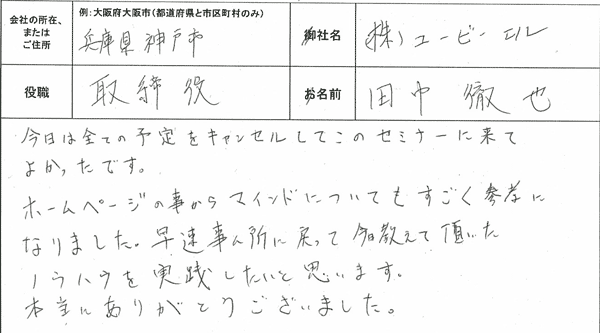 会社の所在、
または
ご住所
例:大阪府大阪市(都道府県と市区町村のみ)
兵庫県神戸市
御社名
(株)ユービーエル
役職
取締役
お名前
田中 徹也
今日は全ての予定をキャンセルしてこのセミナーに来て
よかったです。
ホームページの事からマインドについてもすごく参考に
なりました。早速事ム所に戻って今日教えて頂いた
ノウハウを実践したいと思います。
本当にありがとうございました。